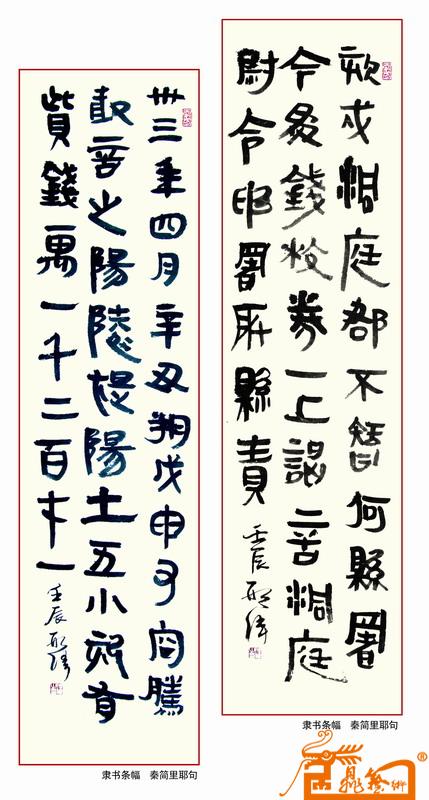 欬戍洞庭郡不智何縣署
今為錢校券一上謁言洞庭
尉令申署所縣責
壬辰
隶书条幅 秦简里耶句
卅三年四月辛丑朔戊申司空騰
敢言之陽陵褆陽士五小欬有
貲錢萬一千二百七十一
壬辰
隶书条幅 秦简里耶句